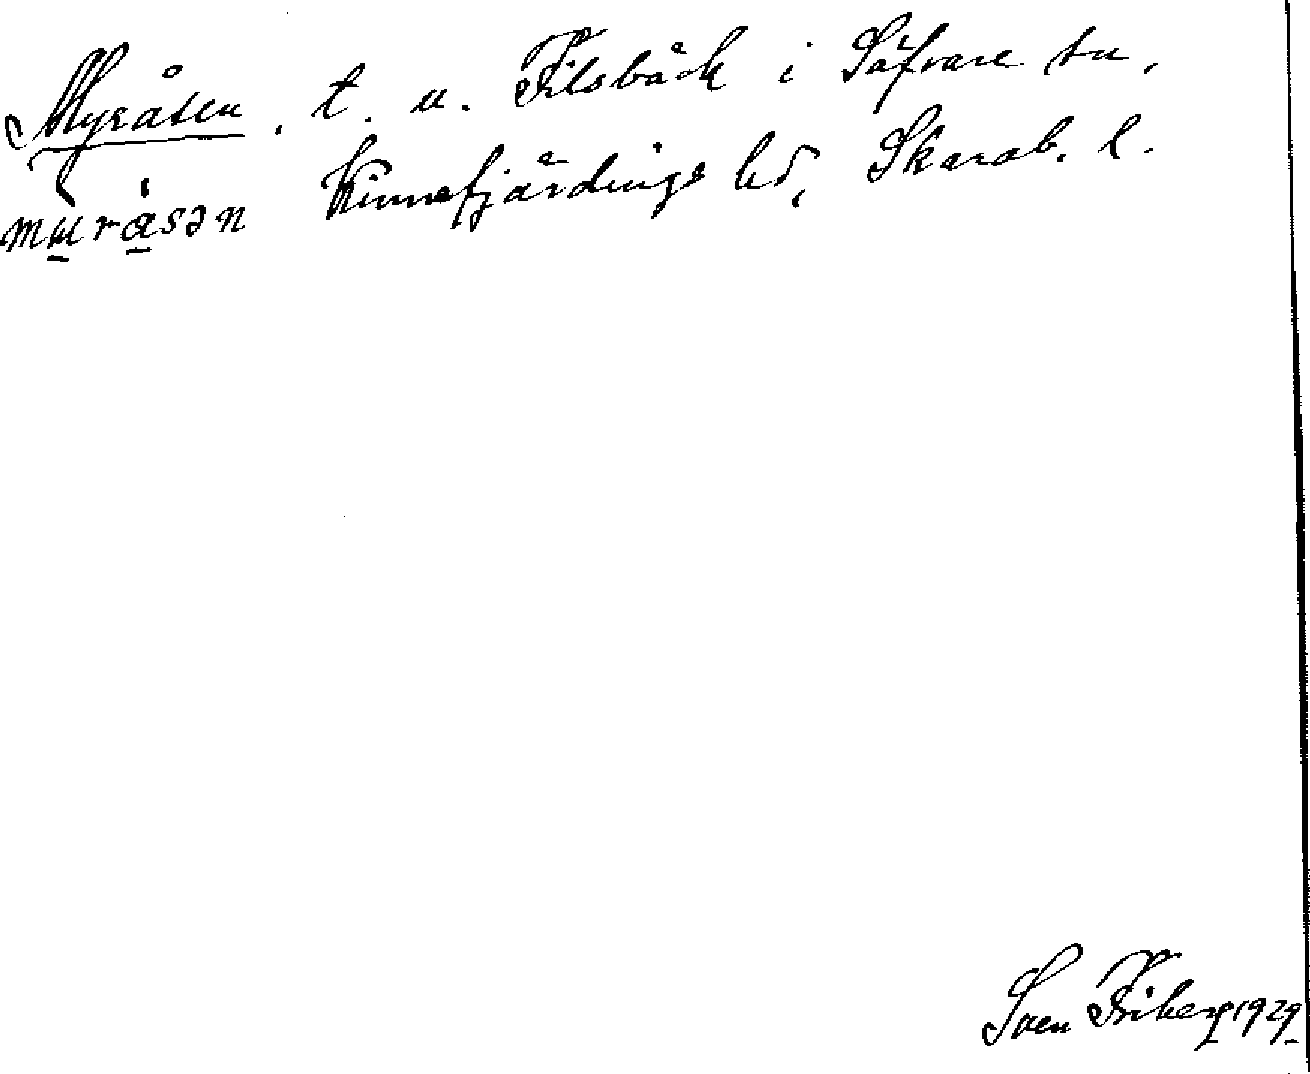 Myråsen, t. u. Filsbäck i Säfvare sn,
Kinnefjärdings hd, Skarab. l.
muråsən
Sven Friberg 1929